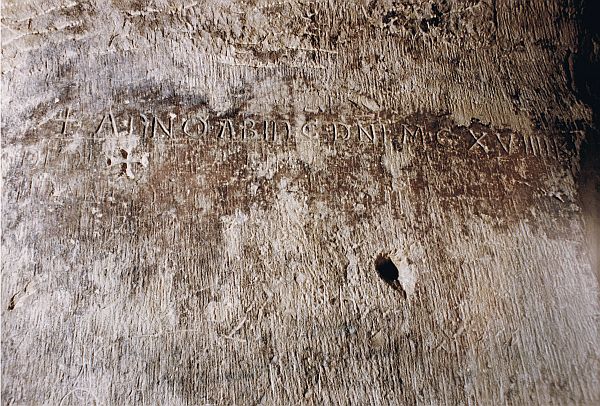 + ANNO AB INC DNI M C XVIIII